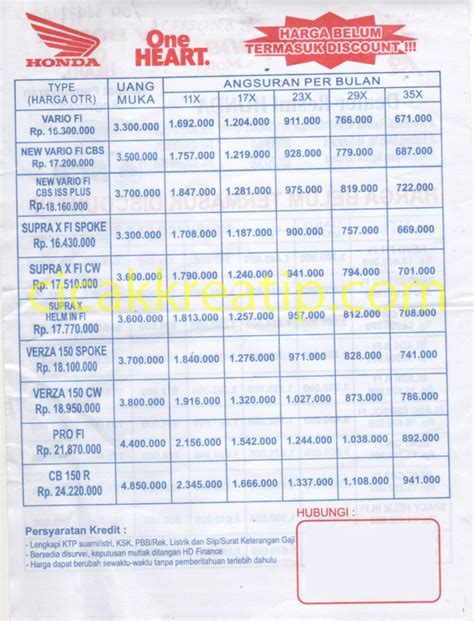 HONDA
One
HEART.
HARGA BELUM
TERMASUK DISCOUNT !!!
TYPE
(HARGA OTR)
UANG
MUKA
ANGSURAN PER BULAN
11X 17X 23X 29X 35X
VARIO FI
Rp. 15.300.000
3.300.000 1.692.000 1.204.000 911.000 766.000 671.000
NEW VARIO FI CBS
Rp. 17.200.000
3.500.000 1.757.000 1.219.000 928.000 779.000 687.000
NEW VARIO FI
CBS ISS PLUS
Rp.18.160.000
3.700.000 1.847.000 1.281.000 975.000 819.000 722.000
SUPRA X FI SPOKE
Rp. 16.430.000
3.300.000 1.708.000 1.187.000 900.000 757.000 669.000
SUPRA X FI CW
Rp. 17.510.000
3.600.000 1.790.000 1.240.000 941.000 794.000 701.000
cicakkreatip.com
SUPRA X
HELM IN FI
Rp. 17.770.000
3.600.000 1.813.000 1.257.000 957.000 812.000 708.000
VERZA 150 SPOKE
Rp. 18.100.000
3.700.000 1.840.000 1.276.000 971.000 828.000 741.000
VERZA 150 CW
Rp. 18.950.000
3.800.000 1.916.000 1.320.000 1.027.000 873.000 786.000
PRO FI
Rp. 21.870.000
4.400.000 2.156.000 1.542.000 1.244.000 1.038.000 892.000
CB 150 R
Rp. 24.220.000
4.850.000 2.345.000 1.666.000 1.337.000 1.108.000 941.000
HUBUNGI :
Persyaratan Kredit :
- Lengkapi KTP suami/istri, KSK, PBB/Rek. Listrik dan Slip/Surat Keterangan Gaji
- Bersedia disurvei, keputusan mutlak ditangan HD Finance
- Harga dapat berubah sewaktu-waktu tanpa pemberitahuan terlebih dahulu